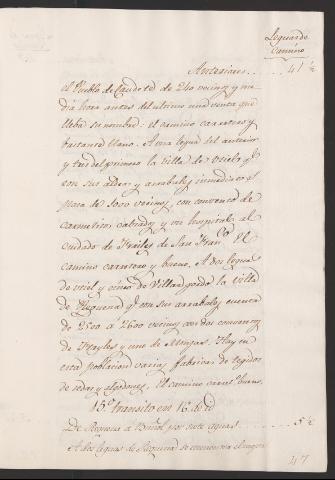 Leguas de
Camino
Anteriores .... 41 ½
el Pueblo de Caudete de 240 vecinos y me
dia hora antes del ultimo una venta que
lleba su nombre: el camino carretero y
bastante llano. A una legua del anterior
y tres del primero la villa de Utiel q.e
con sus aldeas y arrabales inmediatos
pasa de 1000 vecinos, con convento de
Carmelitas calzados y un hospital al
cuidado de Frailes de San Fran.co el
camino carretero y bueno. A dos leguas
de Utiel y cinco de Villargordo la villa
de Requena q.e con sus arrabales cuenta
de 2500 a 2600 vecinos con dos conventos
de Frayles y uno de Monjas. Hay en
esta poblacion varias fabricas de tegidos
de sedas y algodones. El camino es bueno.
15.º transito en 16 de id
De Requena a Buñol por siete aguas. .... 5 ½
A dos leguas de Requena se
47